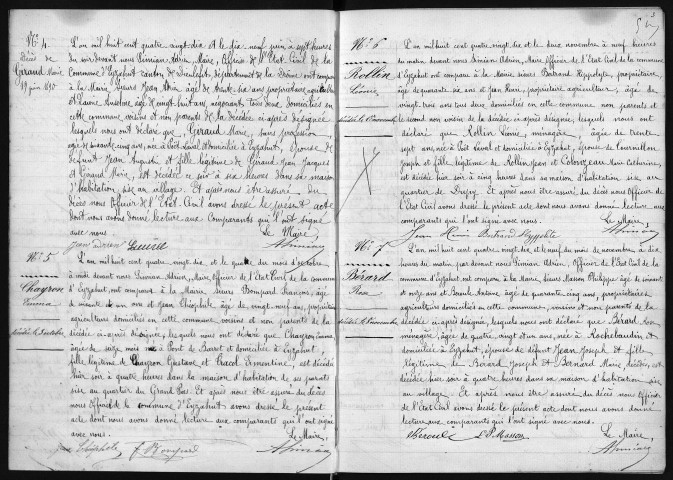 N° 4.
Décès de
Géraud Marie
19 juin 1890
L'an mil huit cent quatre vingt dix et le dix neuf juin à sept heures
du soir devant nous Simian Adrien, Maire, Officier de l'Etat Civil de la
Commune d'Eyzahut canton de Dieulefit, département de la Drôme ont comparu
à la Mairie sieurs Jean Adrien âgé de trente six ans propriétaire
et Antoine, âgé de vingt huit ans, négociant, tous deux domiciliés en
cette commune, voisins et non parents de la décédée ci-après désignée
lesquels nous ont déclaré que, Géraud Marie, sans profession,
âgée de soixante cinq ans, née à Poët Laval domiciliée à Eyzahut, épouse de
défunt Jean Auguste et fille légitime de Géraud Jean Jacques
et Giraud Marie, est décédée ce soir à six heures dans sa maison
d'habitation, sise au village. Et après nous être assuré du
décès nous Officier de l'Etat Civil avons dressé le présent acte
dont nous avons donné lecture aux Comparants qui l'ont signé
avec nous.
Le Maire,
Jean Adrien
N° 5
Chayron
Emma
décédée le 3 octobre
L'an mil huit cent quatre vingt dix, et le quatre du mois d'octobre
à midi devant nous Simian Adrien, Maire, Officier de l'Etat Civil de la commune
d'Eyzahut, ont comparu à la Mairie sieurs Bompard François, âgé
de soixante et un ans et Jean Théophile, âgé de vingt neuf ans, propriétaires
agriculteurs domiciliés en cette commune, voisins et non parents de la
décédée ci-après désignée, lesquels nous ont déclaré que Chayron Emma,
âgée de seize mois née à Pont de Barret et domiciliée à Eyzahut,
fille légitime de Chayron Gustave et Tracol Ermentine, est décédée
hier soir à quatre heures dans la maison d'habitation de ses parents
sise au quartier du Et après nous être assuré du décès
nous Officier de la commune d'Eyzahut avons dressé le présent
acte dont nous avons donné lecture aux comparants qui l'ont signé
avec nous.
Le Maire,
Jean Théophile F. Bompard
N° 6
Rollin
L'an mil huit cent quatre vingt dix et le deux novembre à neuf heures
du matin, devant nous Simian Adrien, Maire Officier de l'Etat Civil de la commune
d'Eyzahut ont comparu à la Mairie sieurs Bertrand Hippolyte, propriétaire,
âgé de quarante six ans et Jean Henri, propriétaire agriculteur, âgé de
vingt trois ans tous deux domiciliés en cette commune non parents et
le second non voisin de la décédée ci-après désignée, lesquels nous ont
déclaré que Rollin ménagère, âgée de trente
sept ans, née à Poët Laval et domiciliée à Eyzahut, épouse de Tournillon
Joseph et fille légitime de Rollin Jean et Marie Catherine,
est décédée hier soir à cinq heures dans sa maison d'habitation sise au
quartier de Et après nous être assuré du décès nous Officier de
l'Etat Civil avons dressé le présent acte dont nous avons donné lecture aux
comparants qui l'ont signé avec nous.
Le Maire,
Jean Henri Bertrand Hyppolite
N° 7
Bérard
Rose
L'an mil huit cent quatre vingt dix, et le neuf du mois de novembre à dix
heures du matin, devant nous Simian Adrien, Maire, Officier de l'Etat Civil de la commune
d'Eyzahut, ont comparu à la Mairie, sieurs Masson Philippe âgé de soixante
et onze ans et Antoine, âgé de quarante cinq ans, propriétaires
agriculteurs domiciliés en cette commune, voisins et non parents de la
décédée ci-après désignée, lesquels nous ont déclaré que Bérard Rose
ménagère, âgée de quatre vingt et un ans, née à Rochebaudin et
domiciliée à Eyzahut, épouse de défunt Jean Joseph et fille
légitime de Bérard Joseph et Bernard Marie, décédés, est
décédée hier soir à quatre heures dans sa maison d'habitation sise
au village. Et après nous être assuré du décès nous Officier
de l'Etat Civil avons dressé le présent acte dont nous avons donné
lecture aux comparants qui l'ont signé avec nous.
Le Maire,
Masson